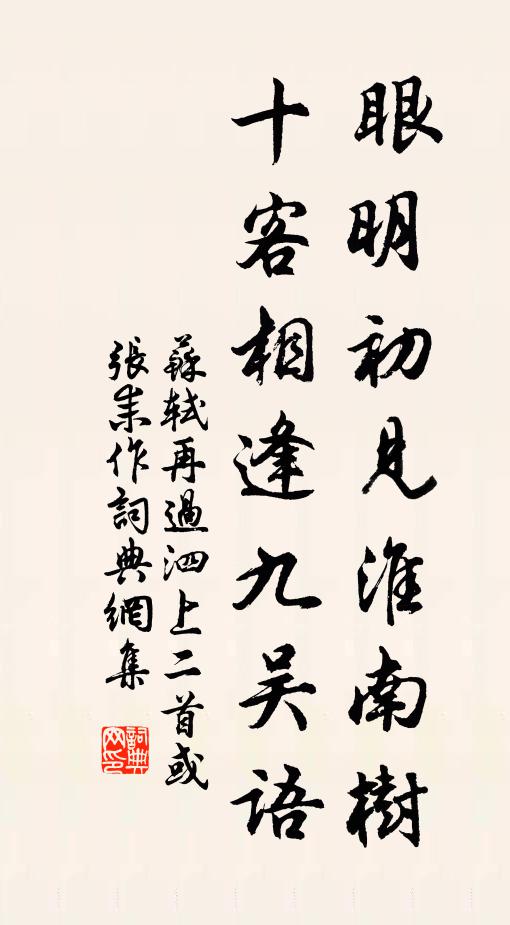 眼明初見淮南樹
十客相逢九吴语
蘇軾再過泗上二首或
張耒作詞典網集
詞典網印